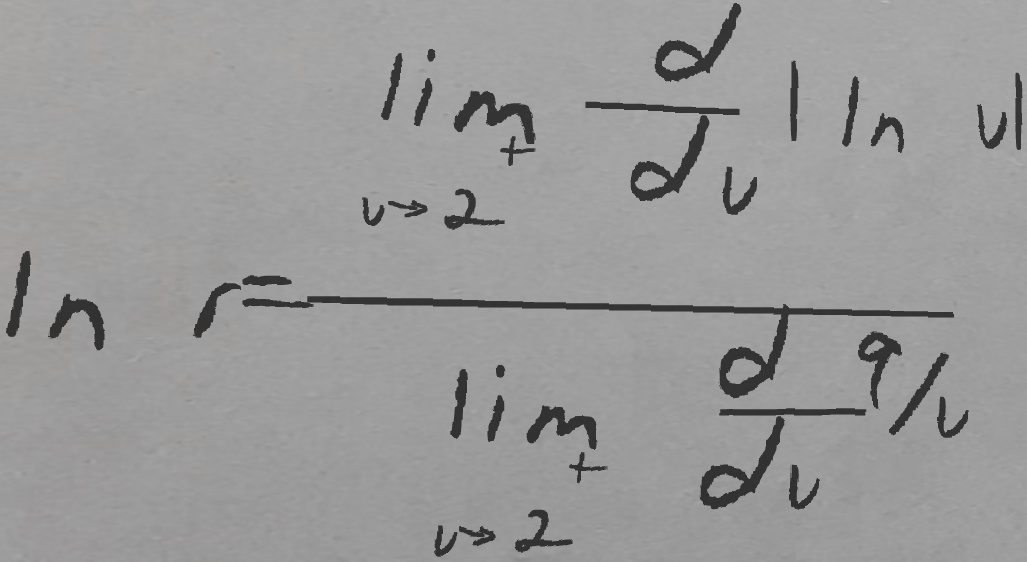 ln r = \frac{\lim_{v \to 2^+} \frac{d}{dv} |\ln v|}{\lim_{v \to 2^+} \frac{d}{dv} 9/v}